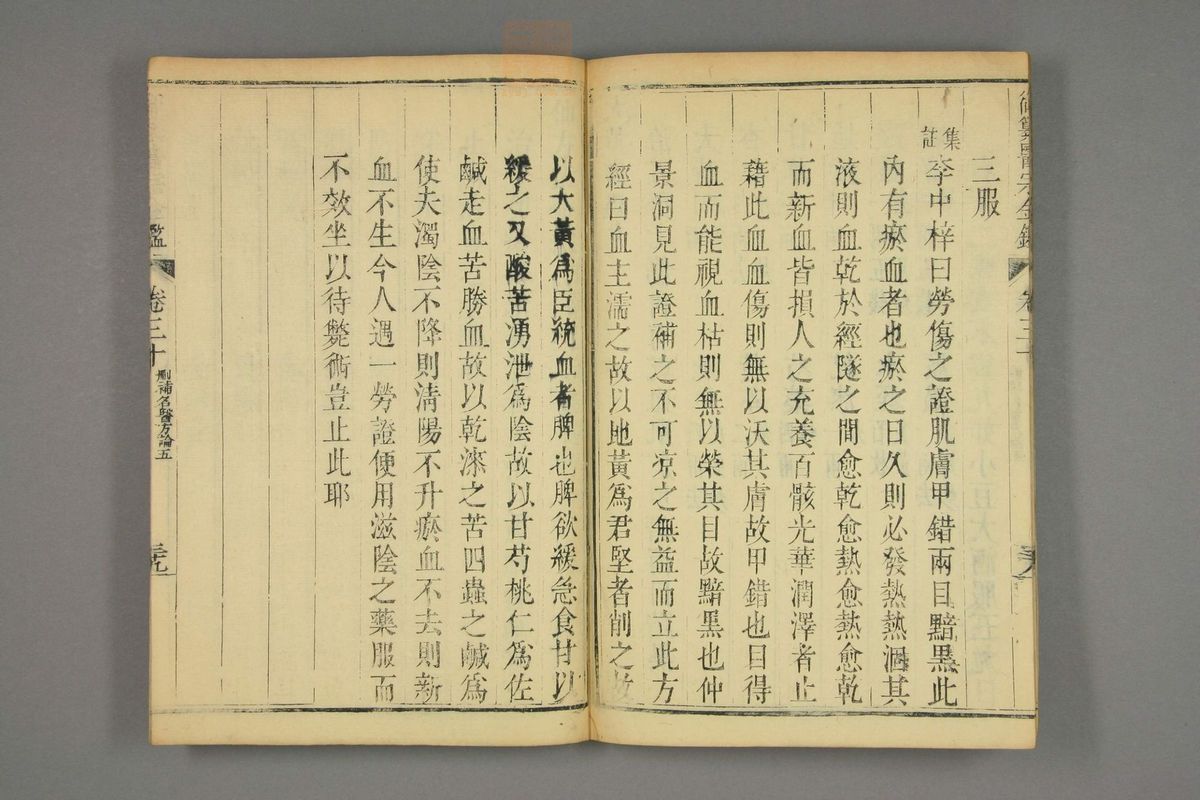 御纂醫宗金鑑
卷三十
三服
集註
李中梓曰勞傷之證肌膚甲錯兩目黯黑此
內有瘀血者也瘀之日久則必發熱熱涸其
液則血乾於經隧之間愈乾愈熱愈熱愈乾
而新血皆損人之充養百骸光華潤澤者止
藉此血血傷則無以沃其膚故甲錯也目得
血而能視血枯則無以榮其目故黯黑也仲
景洞見此證補之不可凉之無益而立此方
經曰血主濡之故以地黃爲君堅者削之故
以大黃爲臣統血者脾也脾欲緩急食甘以
緩之又酸苦湧泄爲陰故以甘芍桃仁爲佐
鹹走血苦勝血故以乾漆之苦四蟲之鹹爲
使夫濁陰不降則淸陽不升瘀血不去則新
血不生今人遇一勞證便用滋陰之藥服而
不效坐以待斃術豈止此耶
鑑
卷三十
刪補名醫方論五